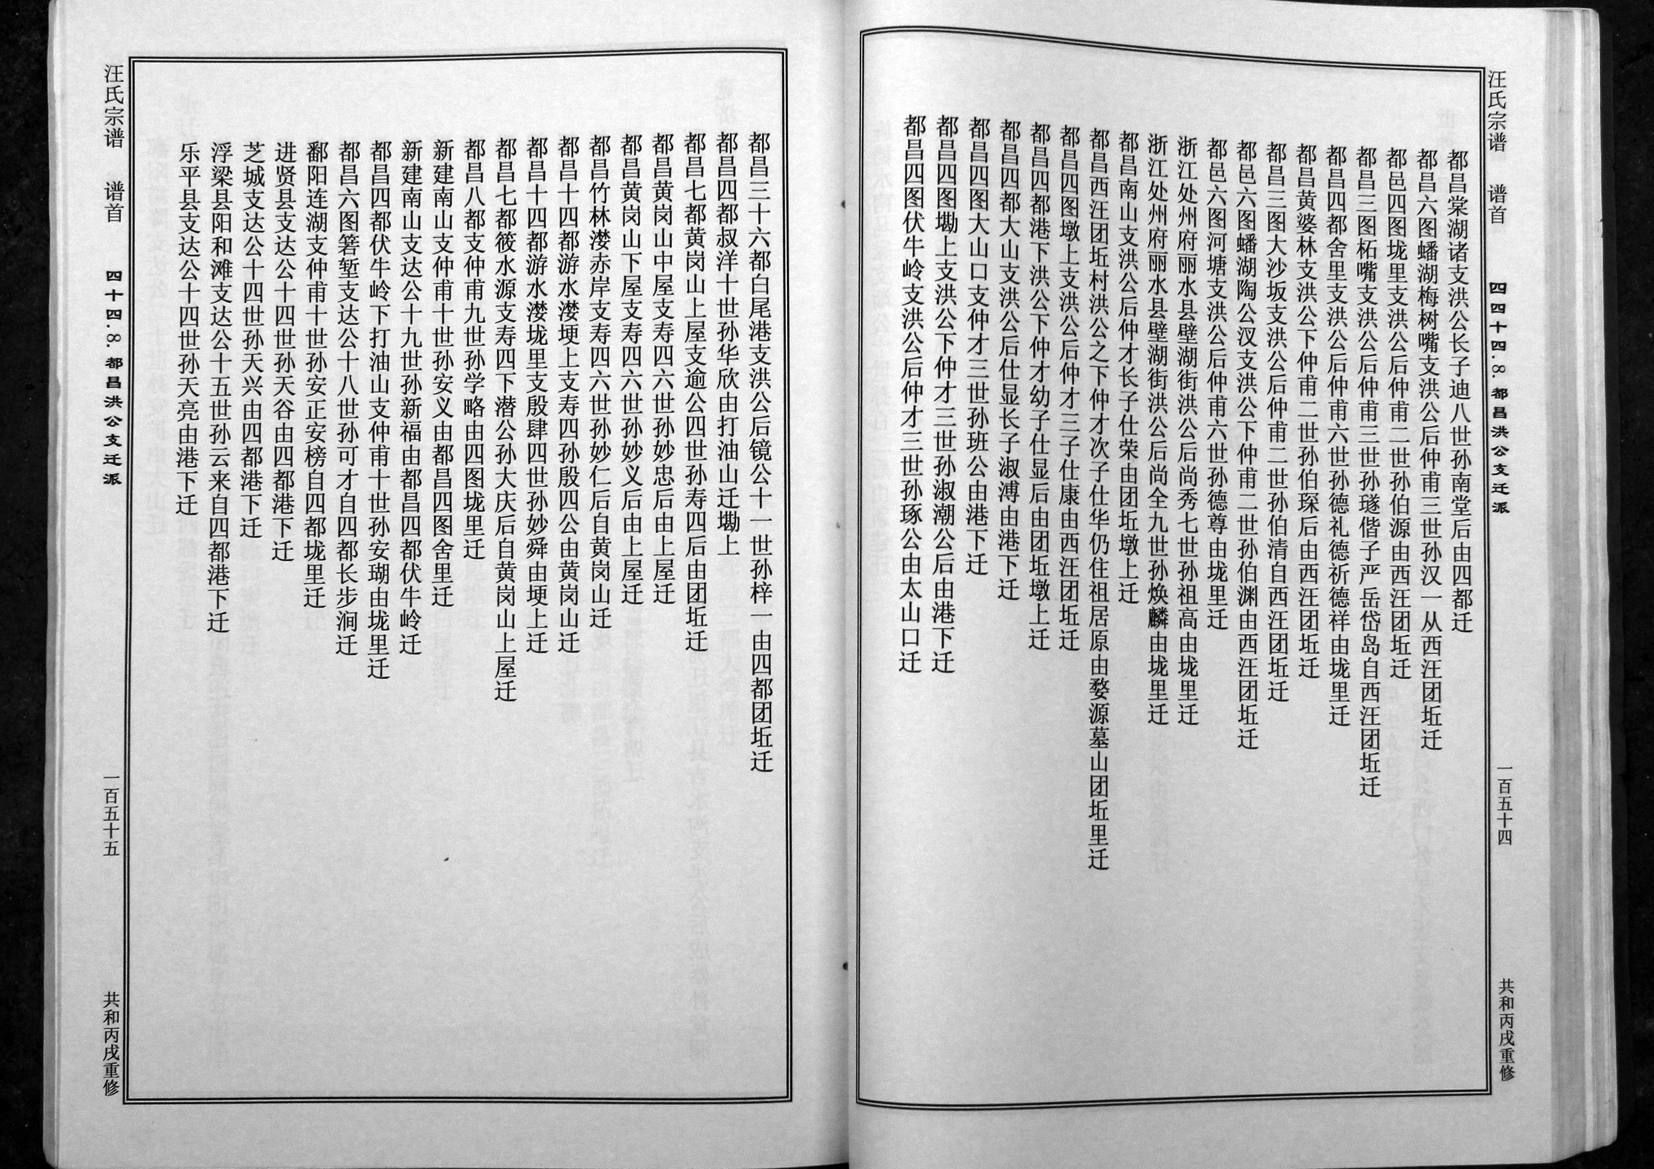 汪氏宗谱 谱首 四四十四.8.都昌洪公支迁派 一百五十四 共和丙戌重修
都昌棠湖诸支洪公长子迪八世孙南堂后由四都迁
都昌六图蟠湖梅树嘴支洪公后仲甫三世孙汉一从西汪团坵迁
都邑四图垅里支洪公后仲甫二世孙伯源由西汪团坵迁
都昌三图柘嘴支洪公后仲甫三世孙璲偕子严岳岱岛自西汪团坵迁
都昌四都舍里支洪公后仲甫六世孙德礼德祈德祥由垅里迁
都昌黄婆林支洪公下仲甫二世孙伯琛后由西汪团坵迁
都昌三图大沙坂支洪公后仲甫二世孙伯清自西汪团坵迁
都邑六图蟠湖陶公汊支洪公下仲甫二世孙伯渊由西汪团坵迁
都邑六图河塘支洪公后仲甫六世孙德尊由垅里迁
浙江处州府丽水县壁湖街洪公后尚秀七世孙祖高由垅里迁
浙江处州府丽水县壁湖街洪公后尚全九世孙焕麟由垅里迁
都昌南山支洪公后仲才长子仕荣由团坵墩上迁
都昌西汪团坵村洪公之下仲才次子仕华仍住祖居原由婺源墓山团坵里迁
都昌四图墩上支洪公后仲才三子仕康由西汪团坵迁
都昌四都港下洪公下仲才幼子仕显后由团坵墩上迁
都昌四都大山支洪公后仕显长子淑溥由港下迁
都昌四图大山口支仲才三世孙班公由港下迁
都昌四图墈上支洪公下仲才三世孙淑潮公后由港下迁
都昌四图伏牛岭支洪公后仲才三世孙琢公由太山口迁
都昌三十六都白尾港支洪公后镜公十一世孙梓一由四都团坵迁
都昌四都叔洋十世孙华欣由打油山迁墈上
都昌七都黄岗山上屋支逾公四世孙寿四后由团坵迁
都昌黄岗山中屋支寿四六世孙妙忠后由上屋迁
都昌黄岗山下屋支寿四六世孙妙义后由上屋迁
都昌竹林漤赤岸支寿四六世孙妙仁后自黄岗山迁
都昌十四都游水漤埂上支寿四孙殷四公由黄岗山迁
都昌十四都游水漤垅里支殷肆四世孙妙舜由埂上迁
都昌七都筱水源支寿四下潜公孙大庆后自黄岗山上屋迁
都昌八都支仲甫九世孙学略由四图垅里迁
新建南山支仲甫十世孙安义由都昌四图舍里迁
新建南山支达公十九世孙新福由都昌四都伏牛岭迁
都昌四都伏牛岭下打油山支仲甫十世孙安瑚由垅里迁
都昌六图箬堑支达公十八世孙可才自四都长步涧迁
鄱阳连湖支仲甫十世孙安正安榜自四都垅里迁
进贤县支达公十四世孙天谷由四都港下迁
芝城支达公十四世孙天兴由四都港下迁
浮梁县阳和滩支达公十五世孙云来自四都港下迁
乐平县支达公十四世孙天亮由港下迁
汪氏宗谱 谱首 四十四.8.都昌洪公支迁派 一百五十五 共和丙戌重修